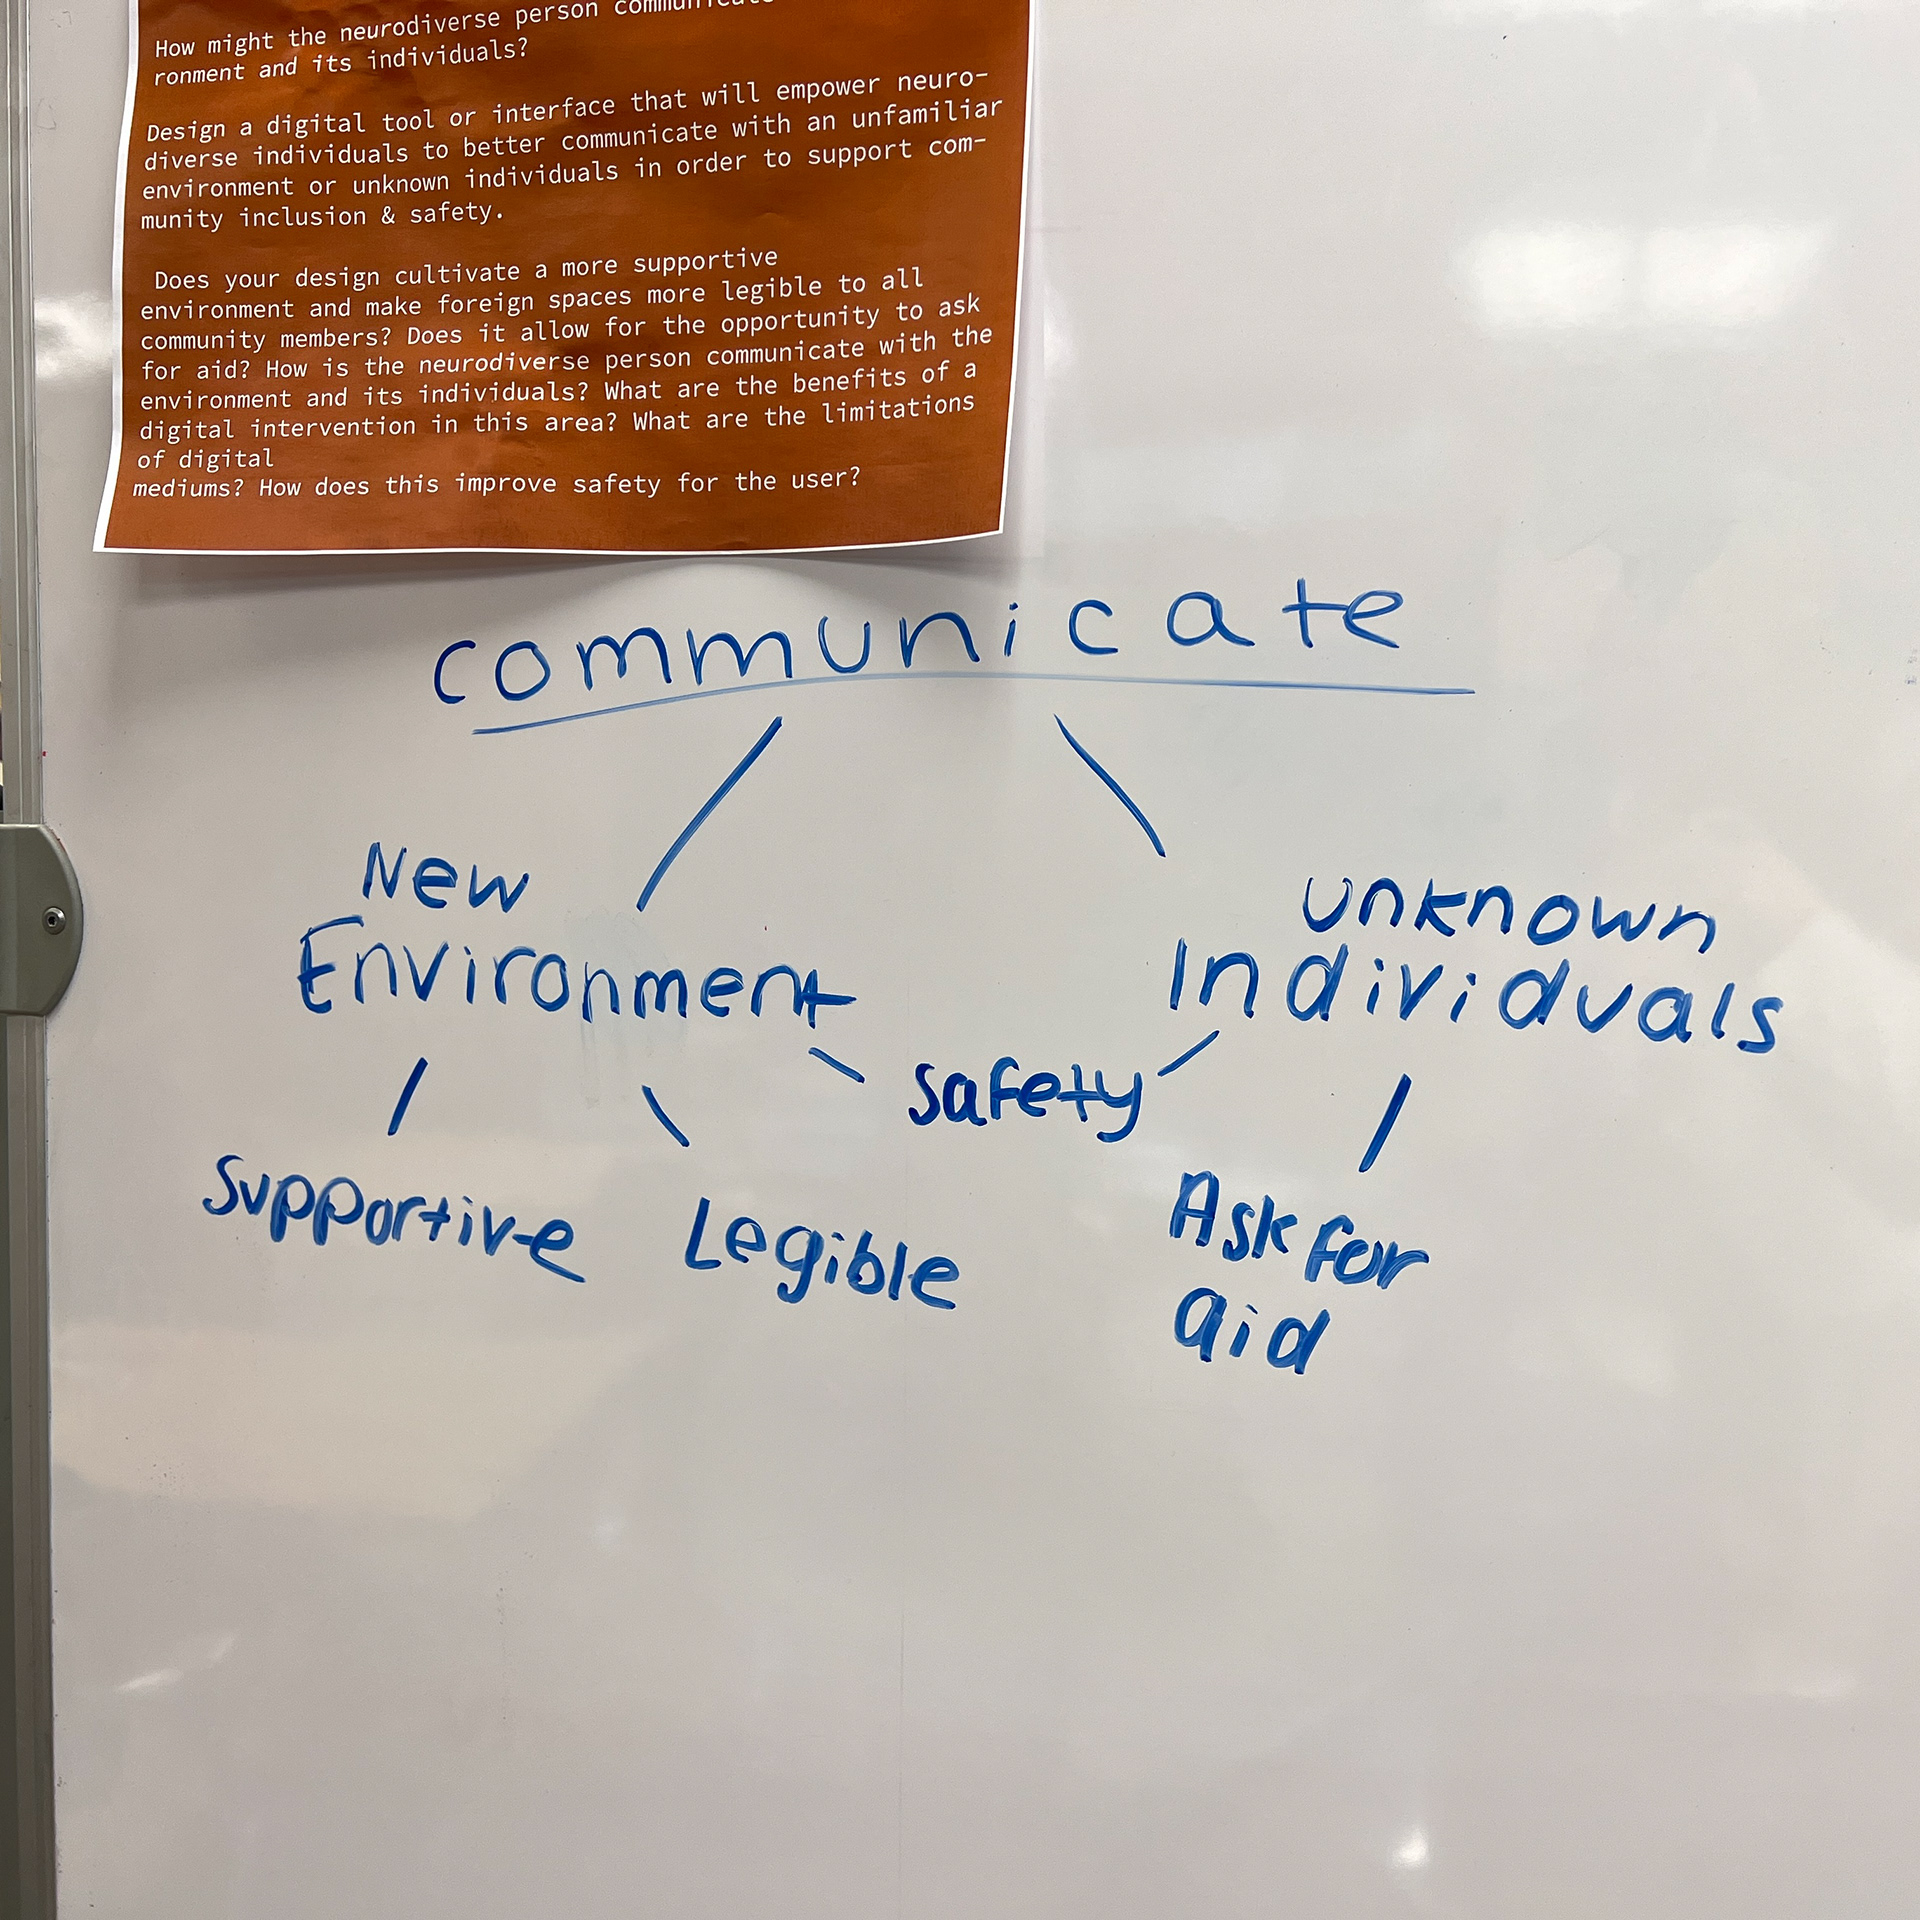 How might the neurodiverse person communicate
ronment and its individuals?
Design a digital tool or interface that will empower neuro-
diverse individuals to better communicate with an unfamiliar
environment or unknown individuals in order to support com-
munity inclusion & safety.
Does your design cultivate a more supportive
environment and make foreign spaces more legible to all
community members? Does it allow for the opportunity to ask
for aid? How is the neurodiverse person communicate with the
environment and its individuals? What are the benefits of a
digital intervention in this area? What are the limitations
of digital
mediums? How does this improve safety for the user?
communicate
New
Environment
unknown
Individuals
safety
Supportive
Legible
Ask for
aid